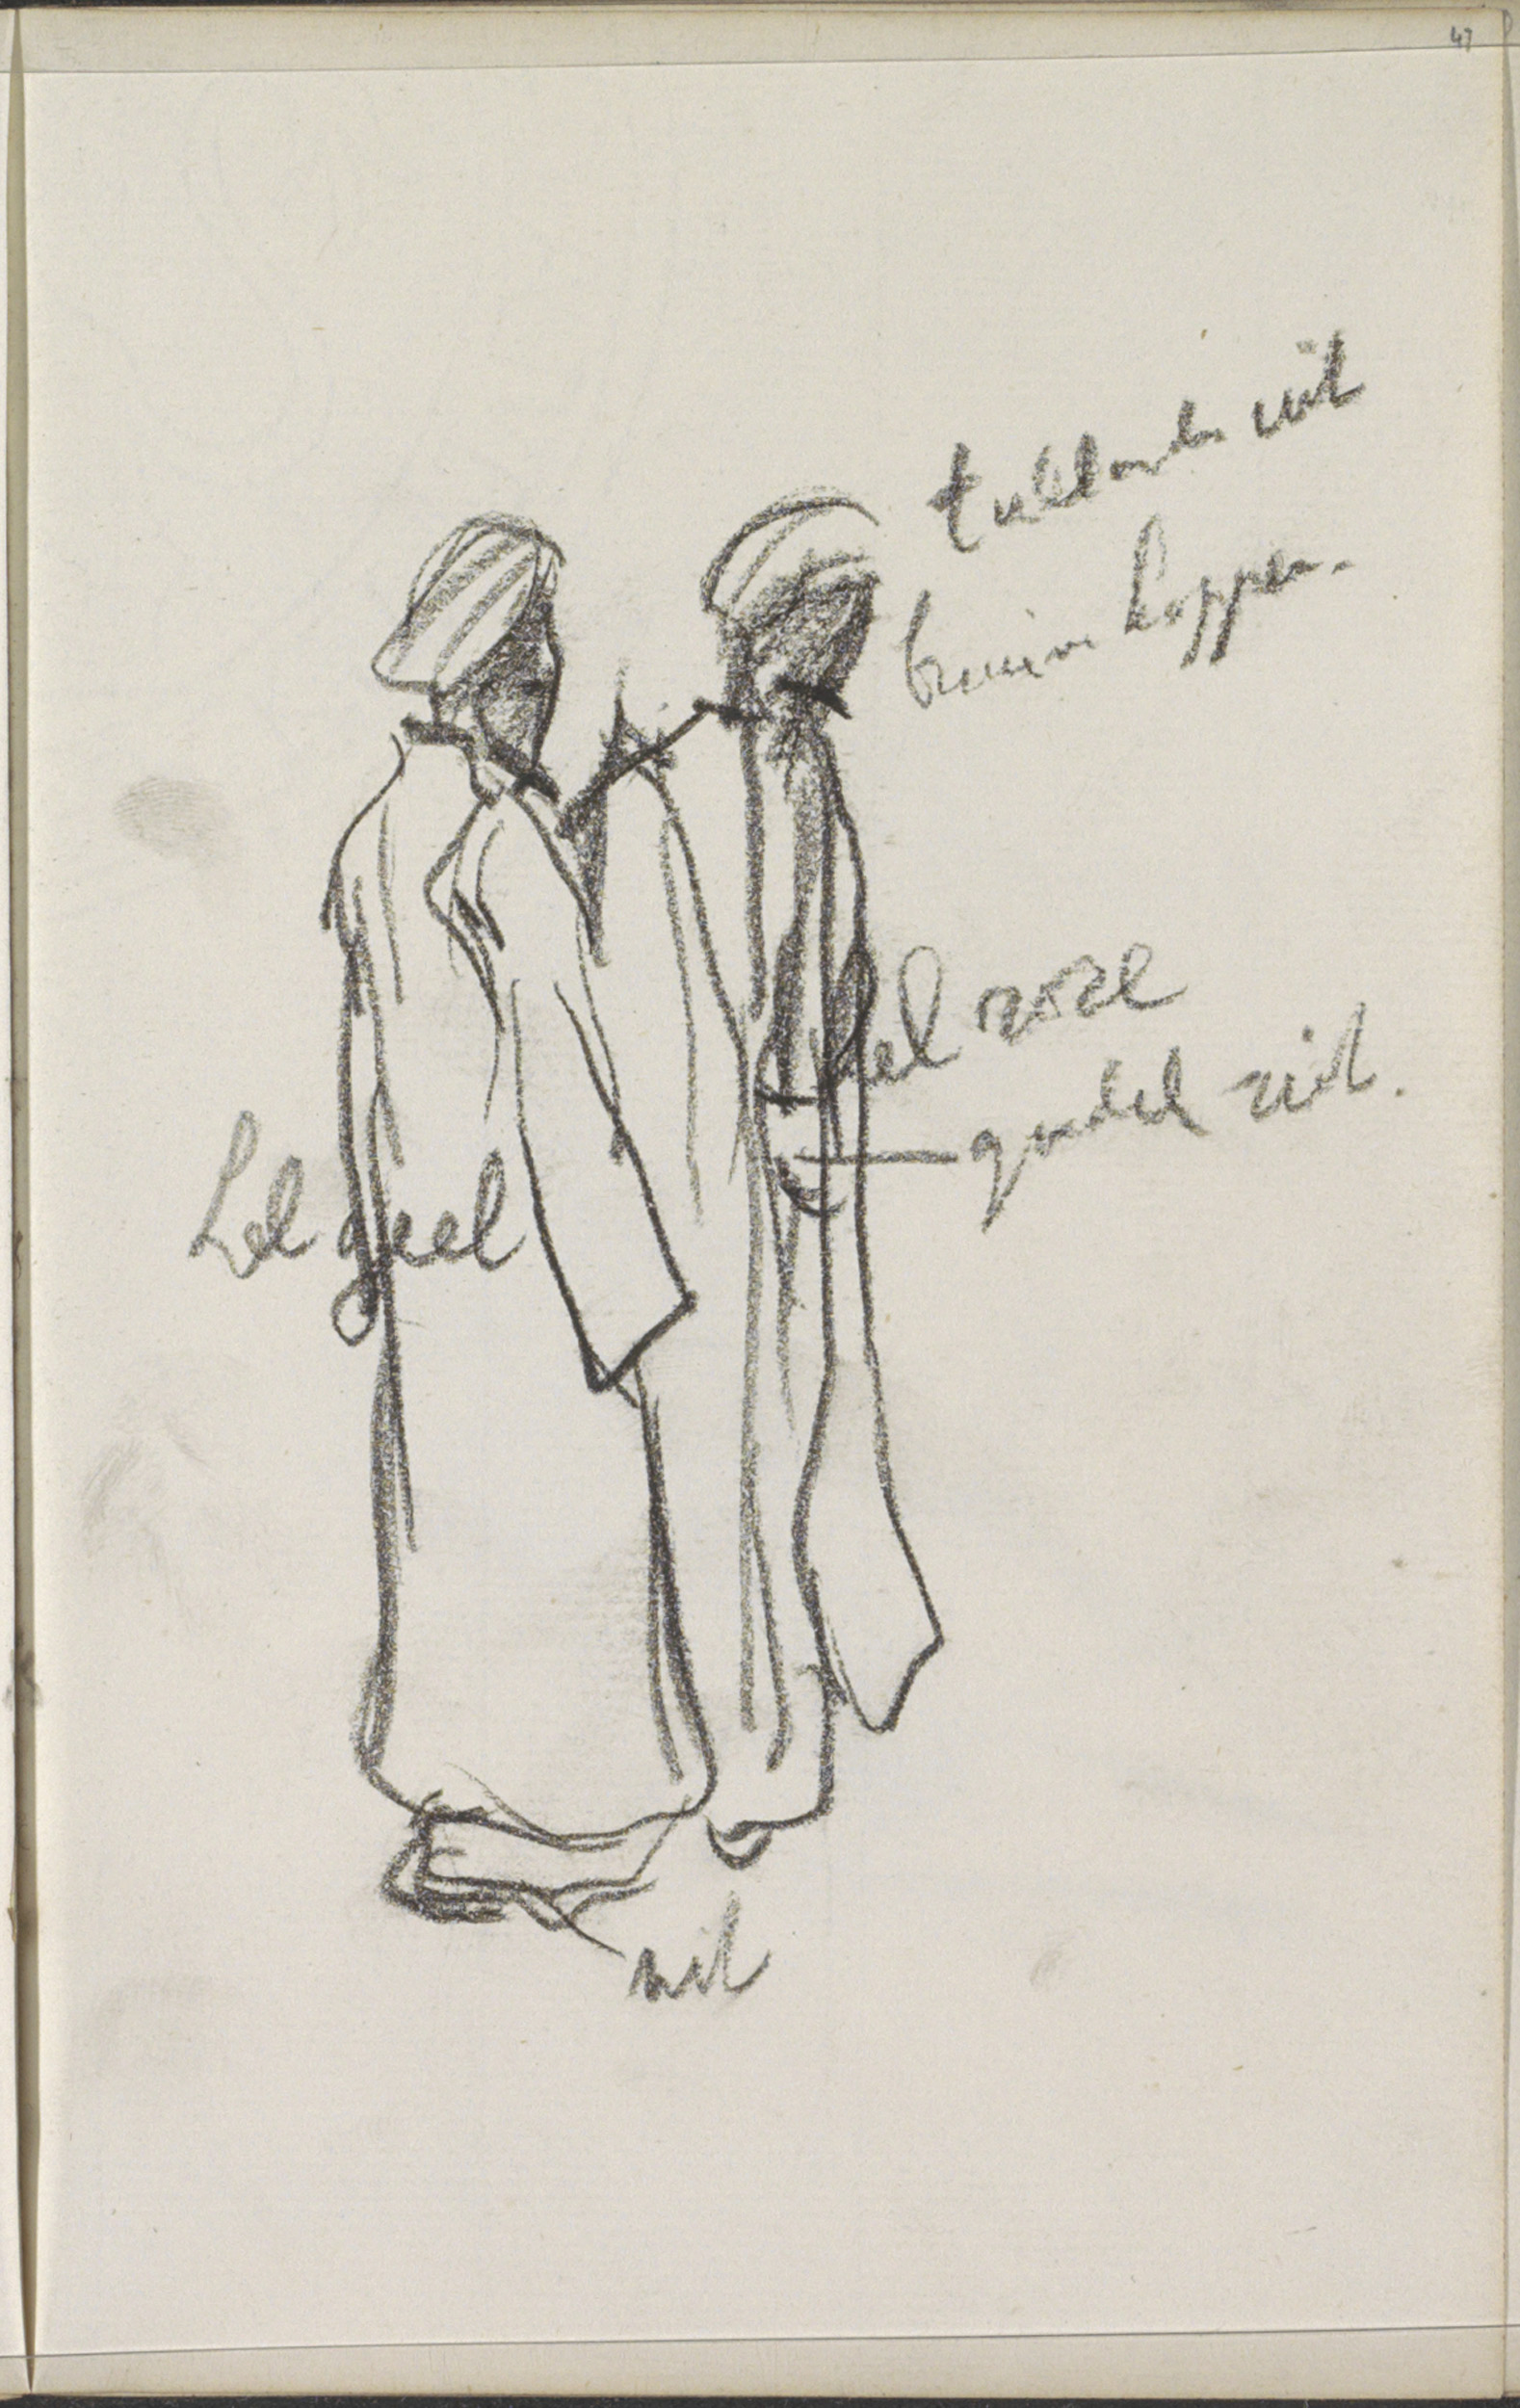 47
tulbanden wit
bruine koppen.
hel roze
gordel wit.
hel geel
wit